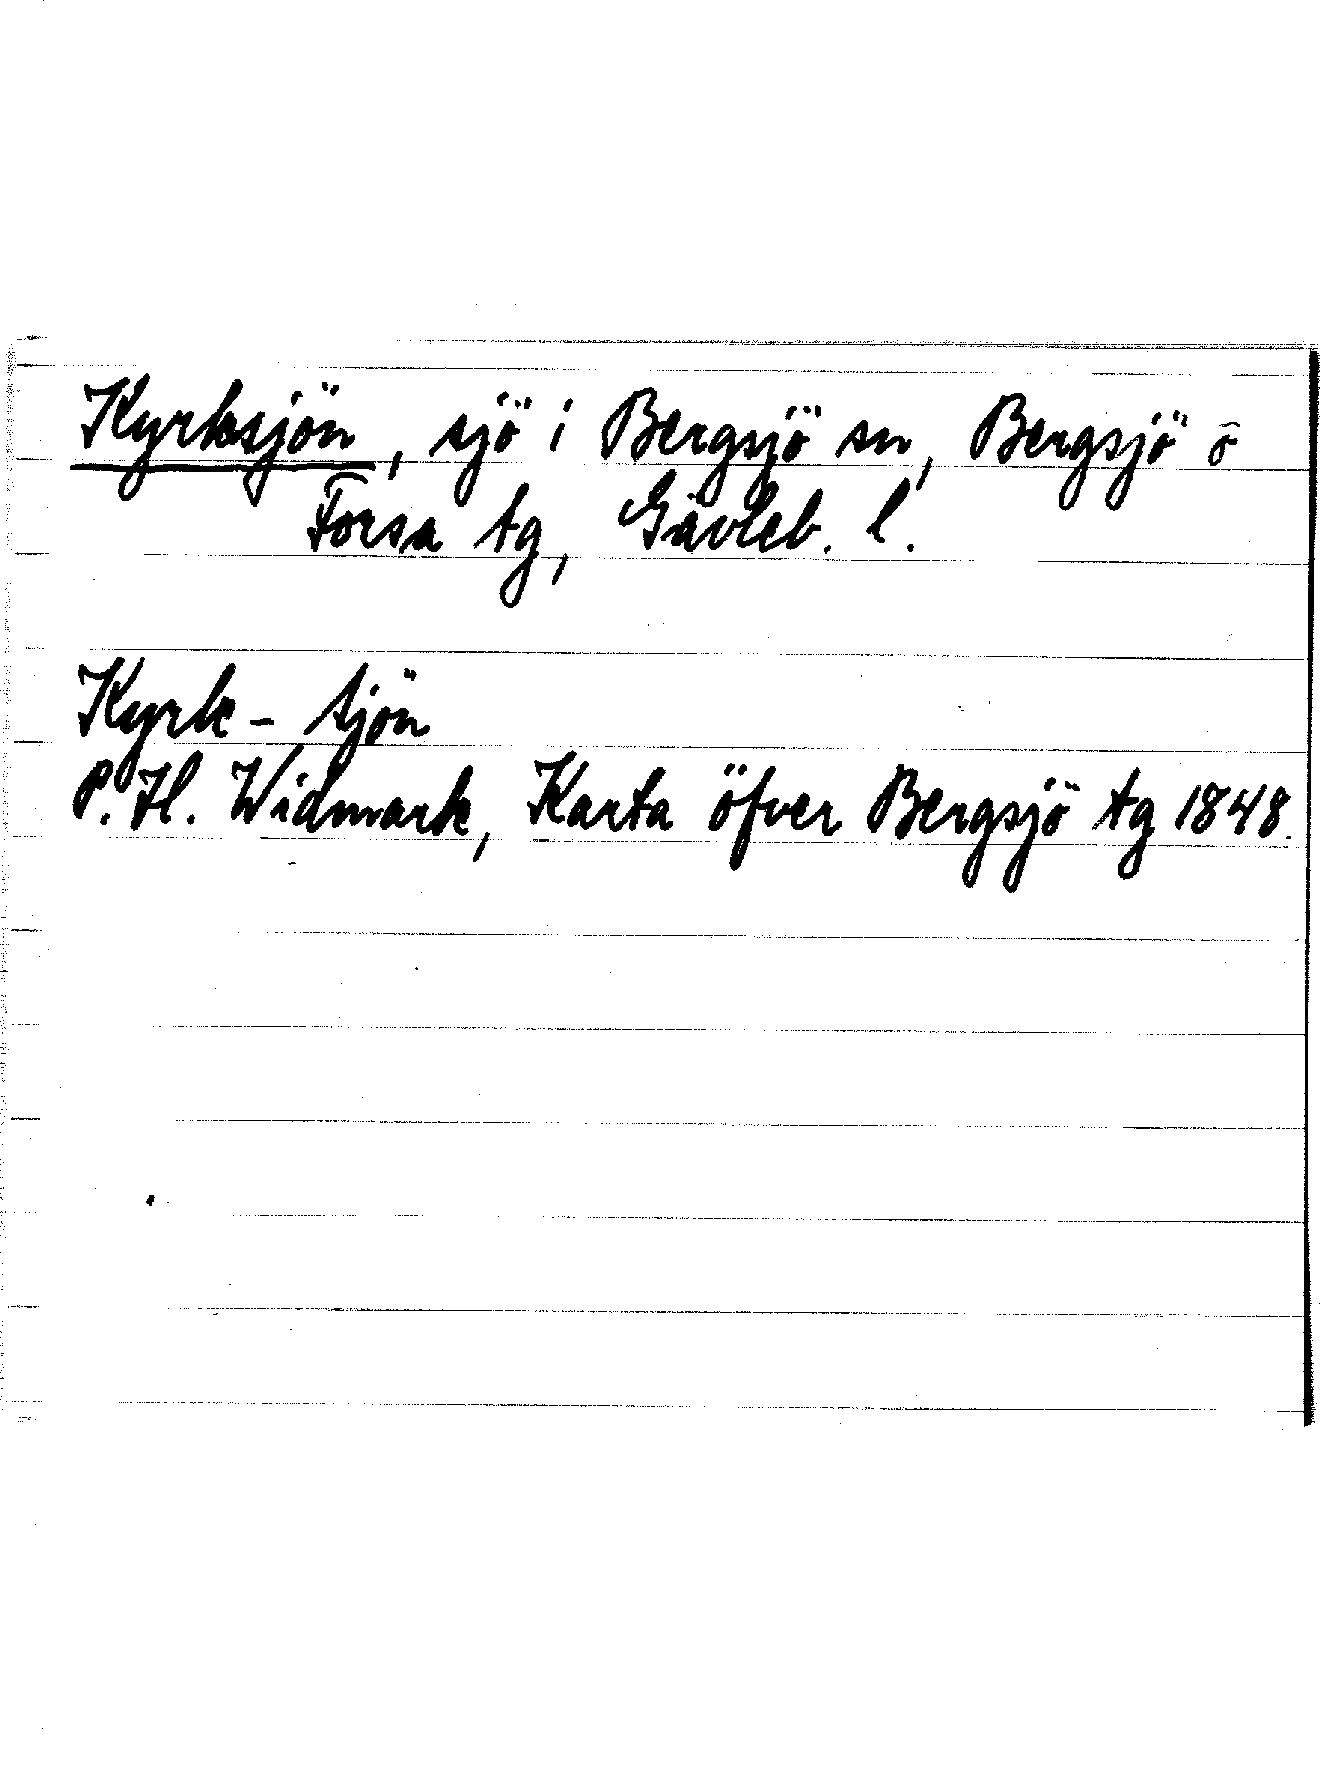 Kyrksjön, sjö i Bergsjö sn, Bergsjö o
Forsa tg, Gävleb. l.
Kyrk-sjön
P. H. Widmark, Karta öfver Bergsjö tg 1848.